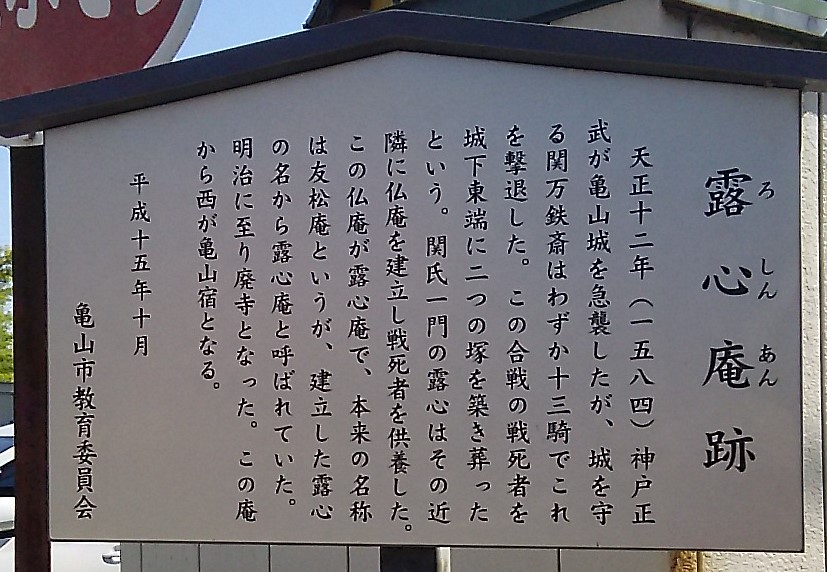 露心庵跡
ろ
しん
あん
天正十二年(一五八四)神戸正
武が亀山城を急襲したが、城を守
る関万鉄斎はわずか十三騎でこれ
を撃退した。この合戦の戦死者を
城下東端に二つの塚を築き葬った
という。関氏一門の露心はその近
隣に仏庵を建立し戦死者を供養した。
この仏庵が露心庵で、本来の名称
は友松庵というが、建立した露心
の名から露心庵と呼ばれていた。
明治に至り廃寺となった。この庵
から西が亀山宿となる。
平成十五年十月
亀山市教育委員会